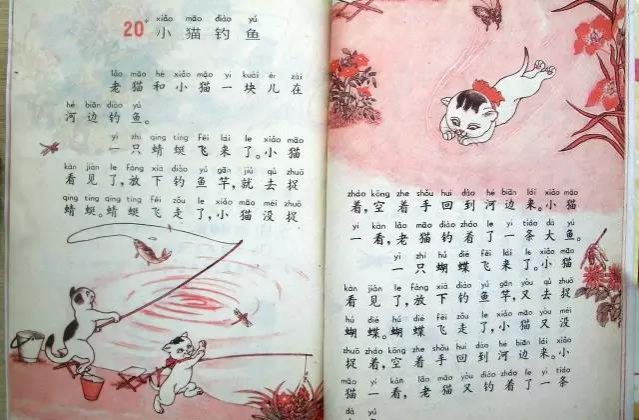 xiǎo māo diào yú
20 小猫钓鱼
lǎo māo hé xiǎo māo yí kuài ér zài
老猫和小猫一块儿在
hé biān diào yú
河边钓鱼。
yì zhī qīng tíng fēi lái le xiǎo māo
一只蜻蜓飞来了。小猫
kàn jiàn le fàng xià diào yú gān jiù qù zhuō
看见了,放下钓鱼竿,就去捉
qīng tíng qīng tíng fēi zǒu le xiǎo māo méi zhuō
蜻蜓。蜻蜓飞走了,小猫没捉
zháo kōng zhe shǒu huí dào hé biān lái xiǎo māo
着,空着手回到河边来。小猫
yí kàn lǎo māo diào zháo le yì tiáo dà yú
一看,老猫钓着了一条大鱼。
yì zhī hú dié fēi lái le xiǎo māo
一只蝴蝶飞来了。小猫
kàn jiàn le fàng xià diào yú gān yòu qù zhuō
看见了,放下钓鱼竿,又去捉
hú dié hú dié fēi zǒu le xiǎo māo yòu méi
蝴蝶。蝴蝶飞走了,小猫又没
zhuō zháo kōng zhe shǒu huí dào hé biān lái xiǎo
捉着,空着手回到河边来。小
māo yí kàn lǎo māo yòu diào zháo le yì tiáo
猫一看,老猫又钓着了一条
dà yú